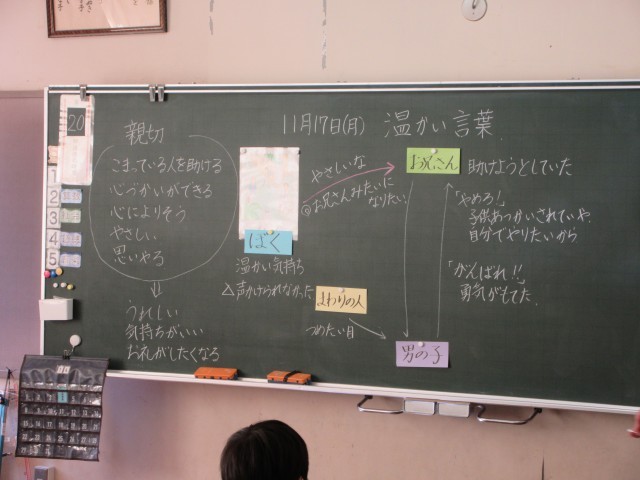 11月17日(月) 温かい言葉
20
親切
こまっている人を助ける
心づかいができる
心によりそう
やさしい
思いやる
⇓
うれしい
気持ちがいい
お礼がしたくなる
1
2
3
4
5
ぼく
温かい気持ち
△声かけられなかった
やさしいな
◎お兄さんみたいに
なりたい
まわりの人
つめたい目
お兄さん
助けようとしていた
「やめろ!」
子供あつかいされていや
自分でやりたいから
「がんばれ!!」
勇気がもてた
男の子